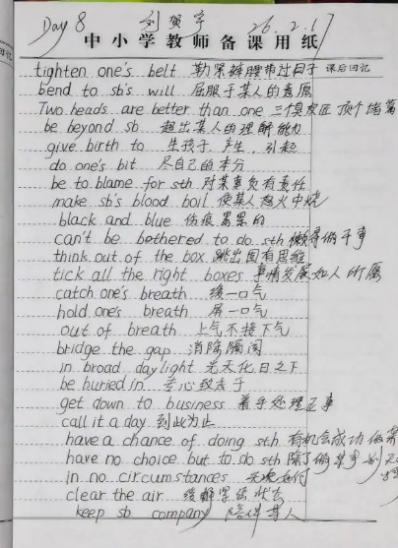 Day 8 刘贺宇 26.2.17
中小学教师备课用纸
tighten one's belt 勒紧裤腰带过日子 课后回记
bend to sb's will 屈服于某人的意愿
Two heads are better than one 三个臭皮匠顶个诸葛
be beyond sb 超出某人的理解能力
give birth to 生孩子,产生,引起
do one's bit 尽自己的本分
be to blame for sth 对某事负有责任
make sb's blood boil 使某人怒火中烧
black and blue 伤痕累累的
can't be bothered to do sth 懒得做某事
think out of the box 跳出固有思维
tick all the right boxes 事情发展如人所愿
catch one's breath 缓一口气
hold one's breath 屏一口气
out of breath 上气不接下气
bridge the gap 消除隔阂
in broad daylight 光天化日之下
be buried in 专心致志于
get down to business 着手处理正事
call it a day 到此为止
have a chance of doing sth 有机会成功做某
have no choice but to do sth 除了做某事别无
in no circumstances
clear the air 缓解紧张状态
keep sb company 陪伴某人